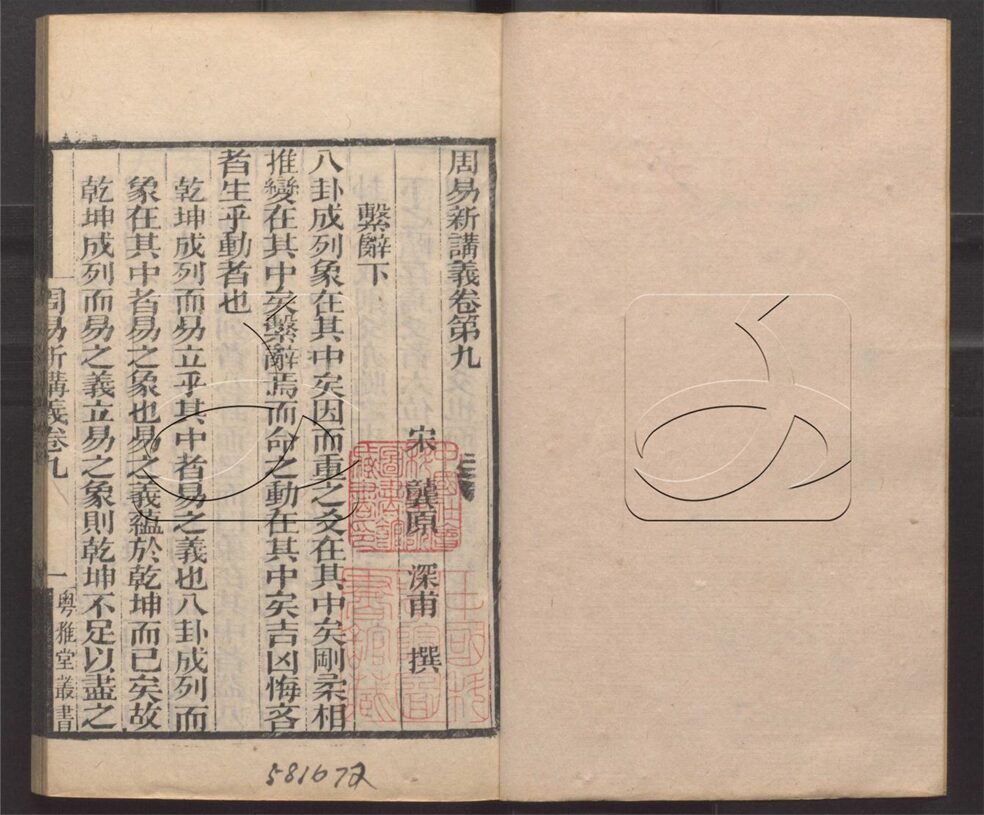 周易新講義卷第九
宋 龔原 深甫 撰
繫辭下
八卦成列象在其中矣因而重之爻在其中矣剛柔相
推變在其中矣繫辭焉而命之動在其中矣吉凶悔吝
者生乎動者也
乾坤成列而易立乎其中者易之義也八卦成列而
象在其中者易之象也易之義蘊於乾坤而已矣故
乾坤成列而易之義立易之象則乾坤不足以盡之
周易新講義卷九
一
粵雅堂叢書
581672